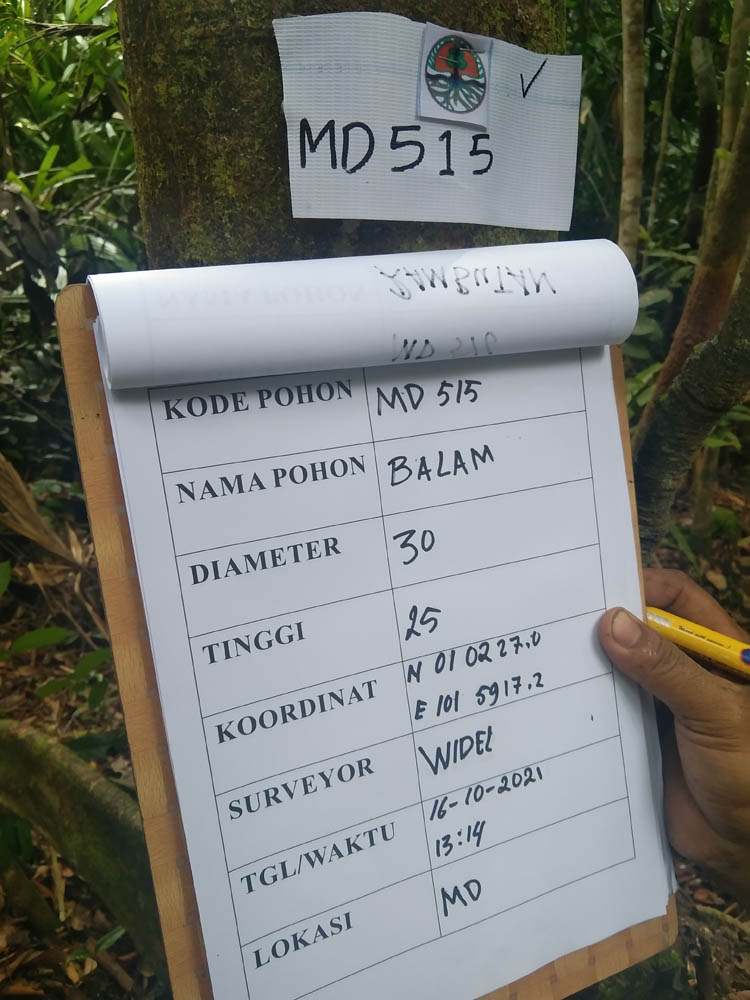 MD 515
KODE POHON MD 515
NAMA POHON BALAM
DIAMETER 30
TINGGI 25
KOORDINAT N 01 02 27.0
E 101 59 17.2
SURVEYOR WIDEL
TGL/WAKTU 16-10-2021
13:14
LOKASI MD